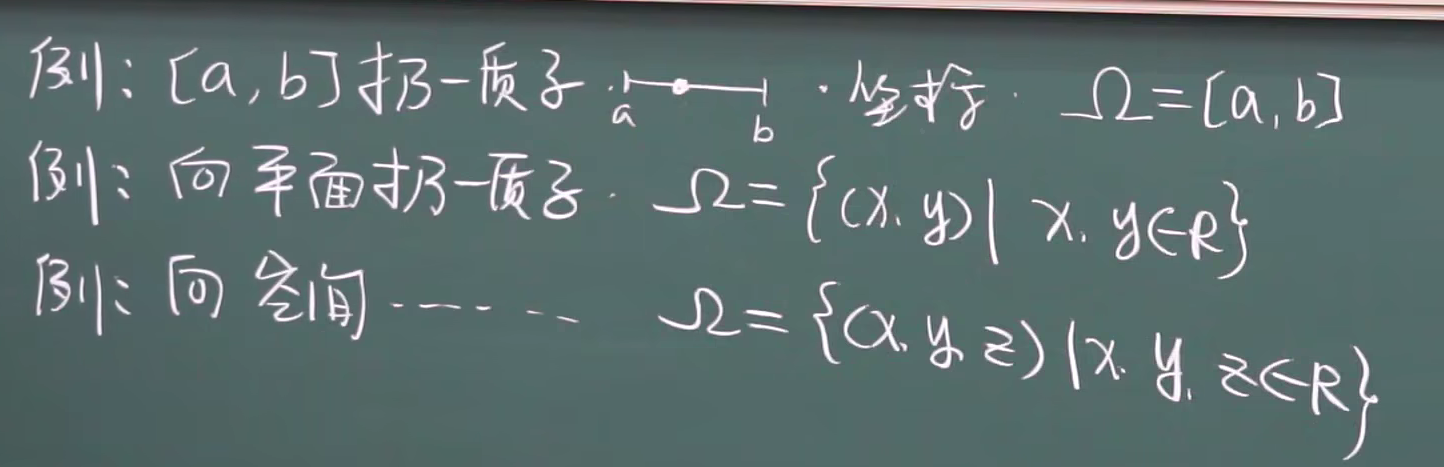 例: [a,b]扔一质子. a b . 坐标. Ω=[a,b]
例: 向平面扔一质子. Ω={(x.y)| x.y∈R}
例: 向空间------ Ω={(x.y.z)|x.y.z∈R}